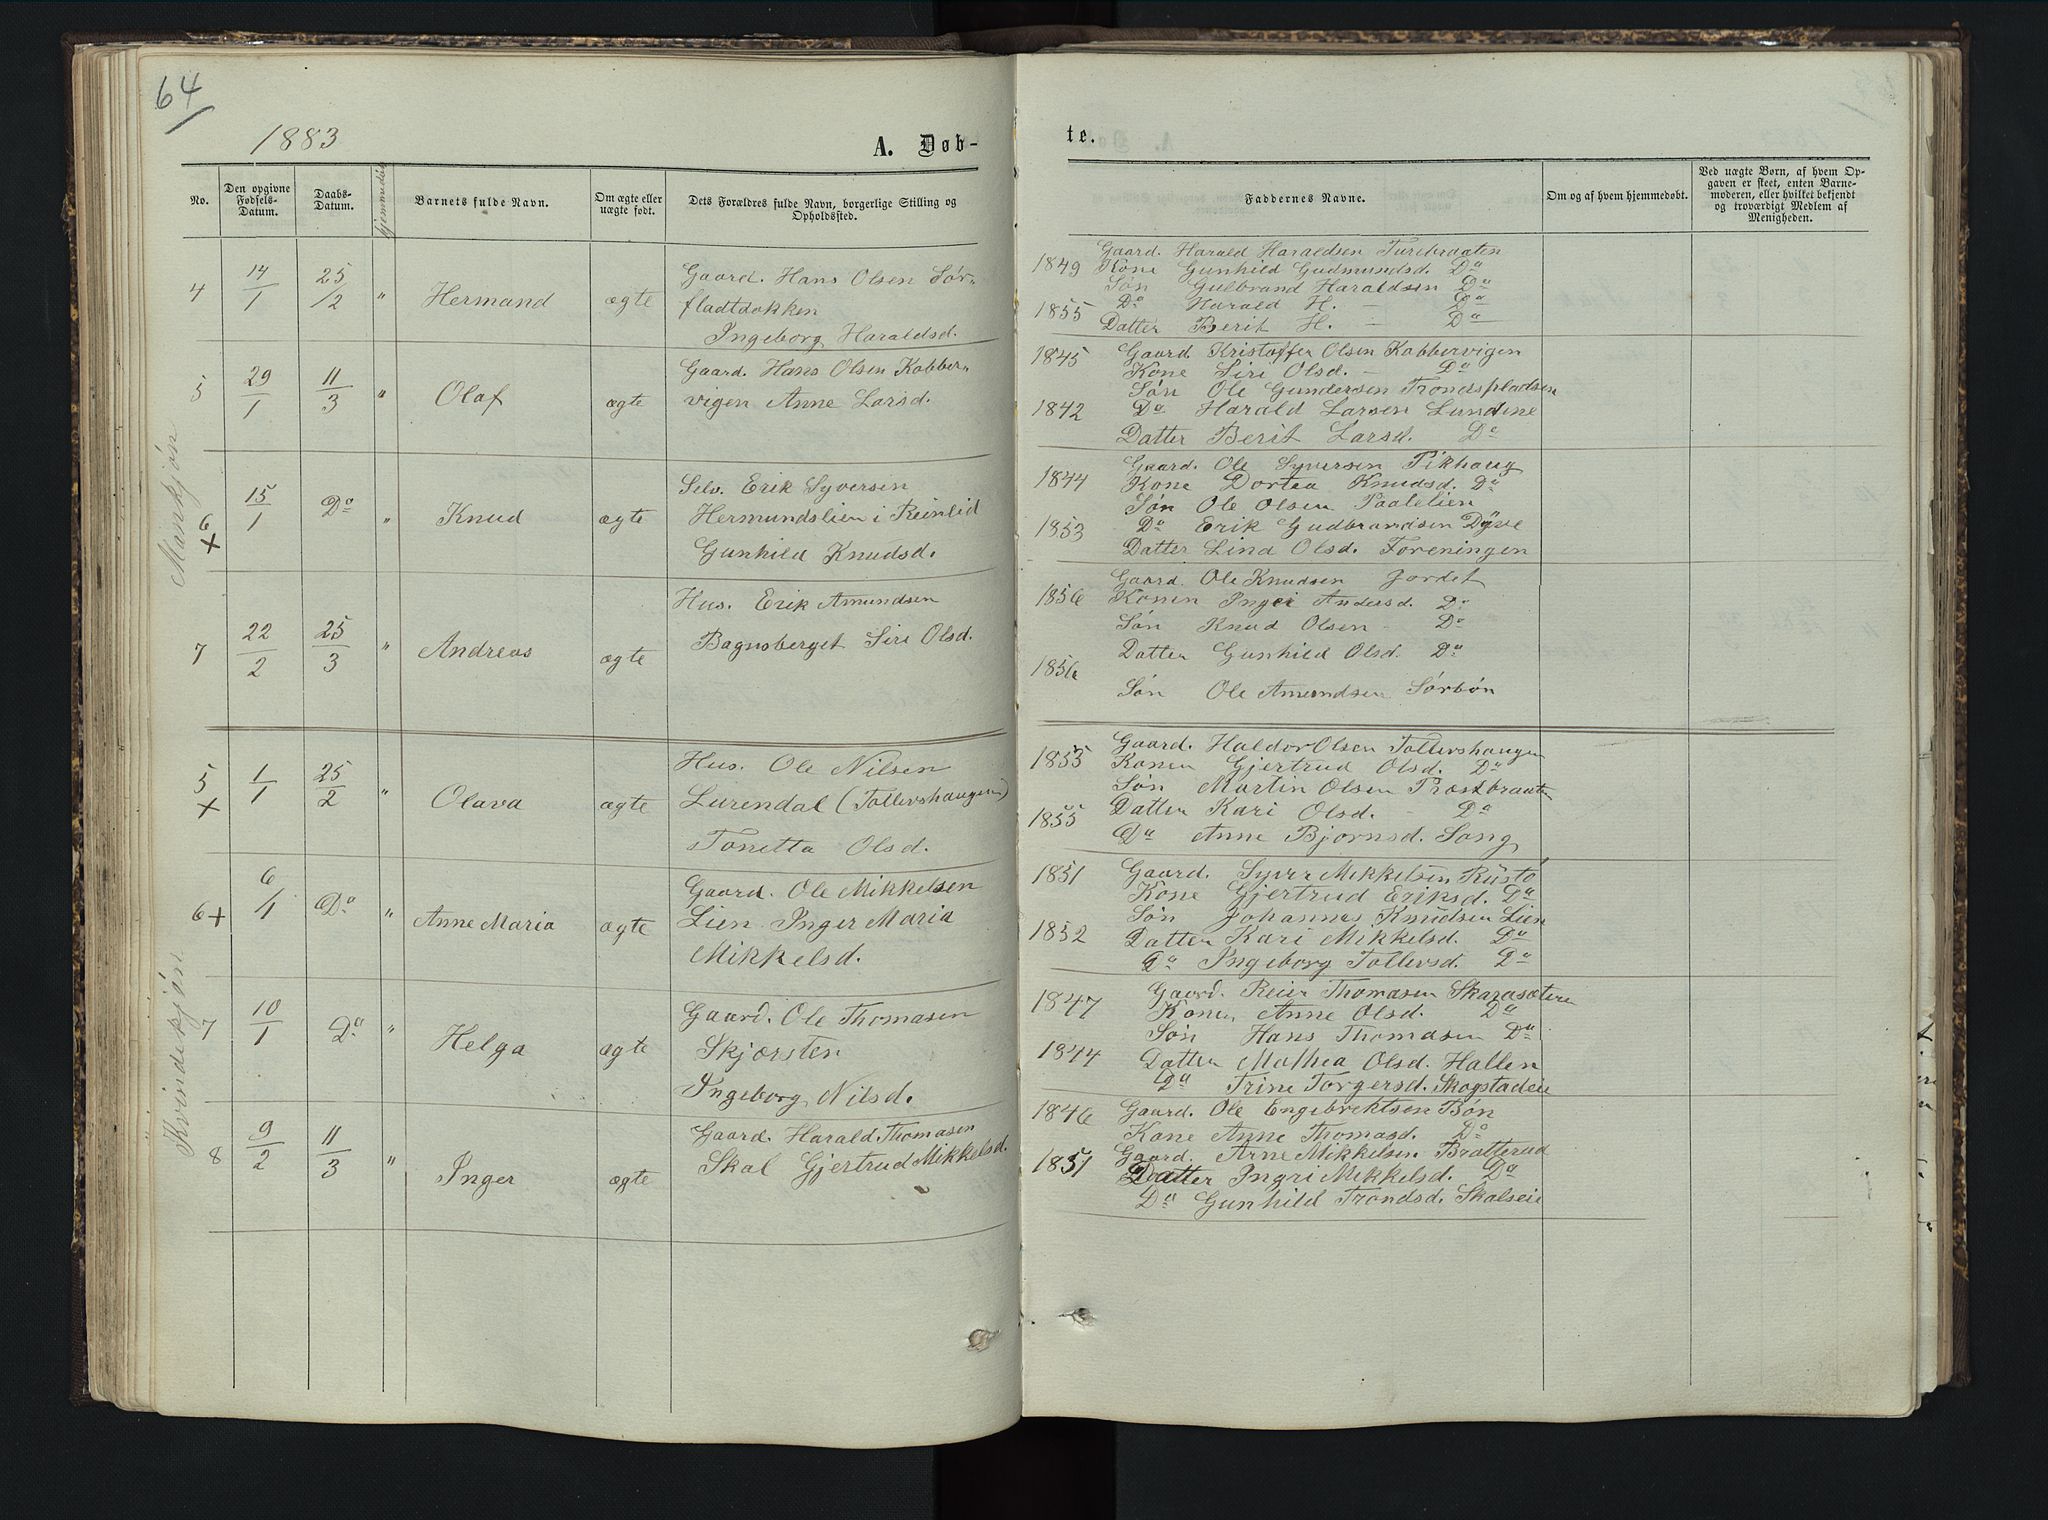 64
1883
A. Døb-
No.
Den opgivne Fødsels-Datum.
Daabs-Datum.
Hjemmedøbt
Barnets fulde Navn.
Om ægte eller uægte født.
Dets Forældres fulde Navn, borgerlige Stilling og Opholdssted.
Mankjøn
4 14/1 25/2 " Hermand ægte
Gaard. Hans Olsen Sør-
fladtdokken
Ingeborg Haraldsd.
5 29/1 11/3 " Olaf ægte
Gaard. Hans Olsen Kobber-
vigen Anne Larsd.
6 + 15/1 Do " Knud ægte
Selv. Erik Syversen
Hermundslien i Reinlid
Gunhild Knudsd.
7 22/2 25/3 " Andreas ægte
Hus. Erik Amundsen
Bagnsberget Siri Olsd.
Kvindekjøn
5 + 1/1 25/2 " Olava ægte
Hus. Ole Nilsen
Lurendal (Tollevshaugen)
Tonetta Olsd.
6 + 6/1 Do " Anne Maria ægte
Gaard. Ole Mikkelsen
Lien Inger Maria
Mikkelsd.
7 10/1 Do " Helga ægte
Gaard. Ole Thomasen
Skjørsten
Ingeborg Nilsd.
8 9/2 11/3 " Inger ægte
Gaard. Harald Thomasen
Skal Gjertrud Mikkelsd.
te.
Faddernes Navne.
Om og af hvem hjemmedøbt.
Ved uægte Børn, af hvem Op-
gaven er skeet, enten Barne-
moderen, eller hvilket bekjendt
og troværdigt Medlem af
Menigheden.
1849
1855
Gaard. Harald Haraldsen Turebraaten
Kone Gunhild Gudmundsd. Do
Søn Gulbrand Haraldsen Do
Do Harald H. - Do
Datter Berit H. - Do
1845
1842
Gaard Kristoffer Olsen Kobbervigen
Kone Siri Olsd. - Do
Søn Ole Gundersen Trondspladsen
Do Harald Larsen Lundene
Datter Berit Larsd. Do
1844
1853
Gaard. Ole Syversen Pikhaug
Kone Dortea Knudsd. Do
Søn Ole Olsen Paalelien
Do Erik Gudbrandsen Dÿve
Datter Lind Olsd. Foreningen
1856
1856
Gaard. Ole Knudsen Jordet
Konen Inger Andersd. Do
Søn Knud Olsen - Do
Datter Gunhild Olsd. Do
Søn Ole Amundsen Sørbøn
1855
1855
Gaard. Haldor Olsen Tollevshaugen
Konen Gjertrud Olsd. Do
Søn Martin Olsen Prestbraaten
Datter Kari Olsd. - Do
Do Anne Bjørnsd. Song
1851
1852
Gaard. Syver Mikkelsen Rustø
Kone Gjertrud Eriksd. Do
Søn Johannes Knudsen Lien
Datter Kari Mikkelsd. Do
Do Ingeborg Tollevsd. Do
1847
1844
Gaard. Reier Thomasen Skarasæteren
Kone Anne Olsd. Do
Søn Hans Thomasen Do
Datter Mathea Olsd. Hallen
Do Trine Torgersd. Skogstadeie
1846
1851
Gaard. Ole Engebrektsen Bøn
Kone Anne Thomasd. Do
Gaard. Arne Mikkelsen Bratterud
Datter Ingri Mikkelsd. Do
Do Gunhild Trondsd. Skalseie